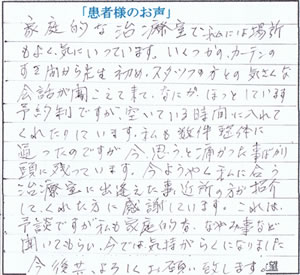 「患者様のお声」
家庭的な治療室で私には場所
もよく気にいっています。いくつかの、カーテンの
すき間から先生初め、スタッフの方との気さくな
会話が聞こえて来て、なにか、ほっとしています
予約制ですが、空いている時間に入れて
くれたりしています。私も数件整体に
通ったのですが今、思うと痛かった事ばかり
頭に残っています。今ようやく私に合う
治療室に出逢えた事近所の方が紹介
してくれた方に感謝しています。これは、
予談ですが私も家庭的な、なやみ事など
聞いてもらい、今では気持がらくになりました
今後共、よろしくお願い致します。